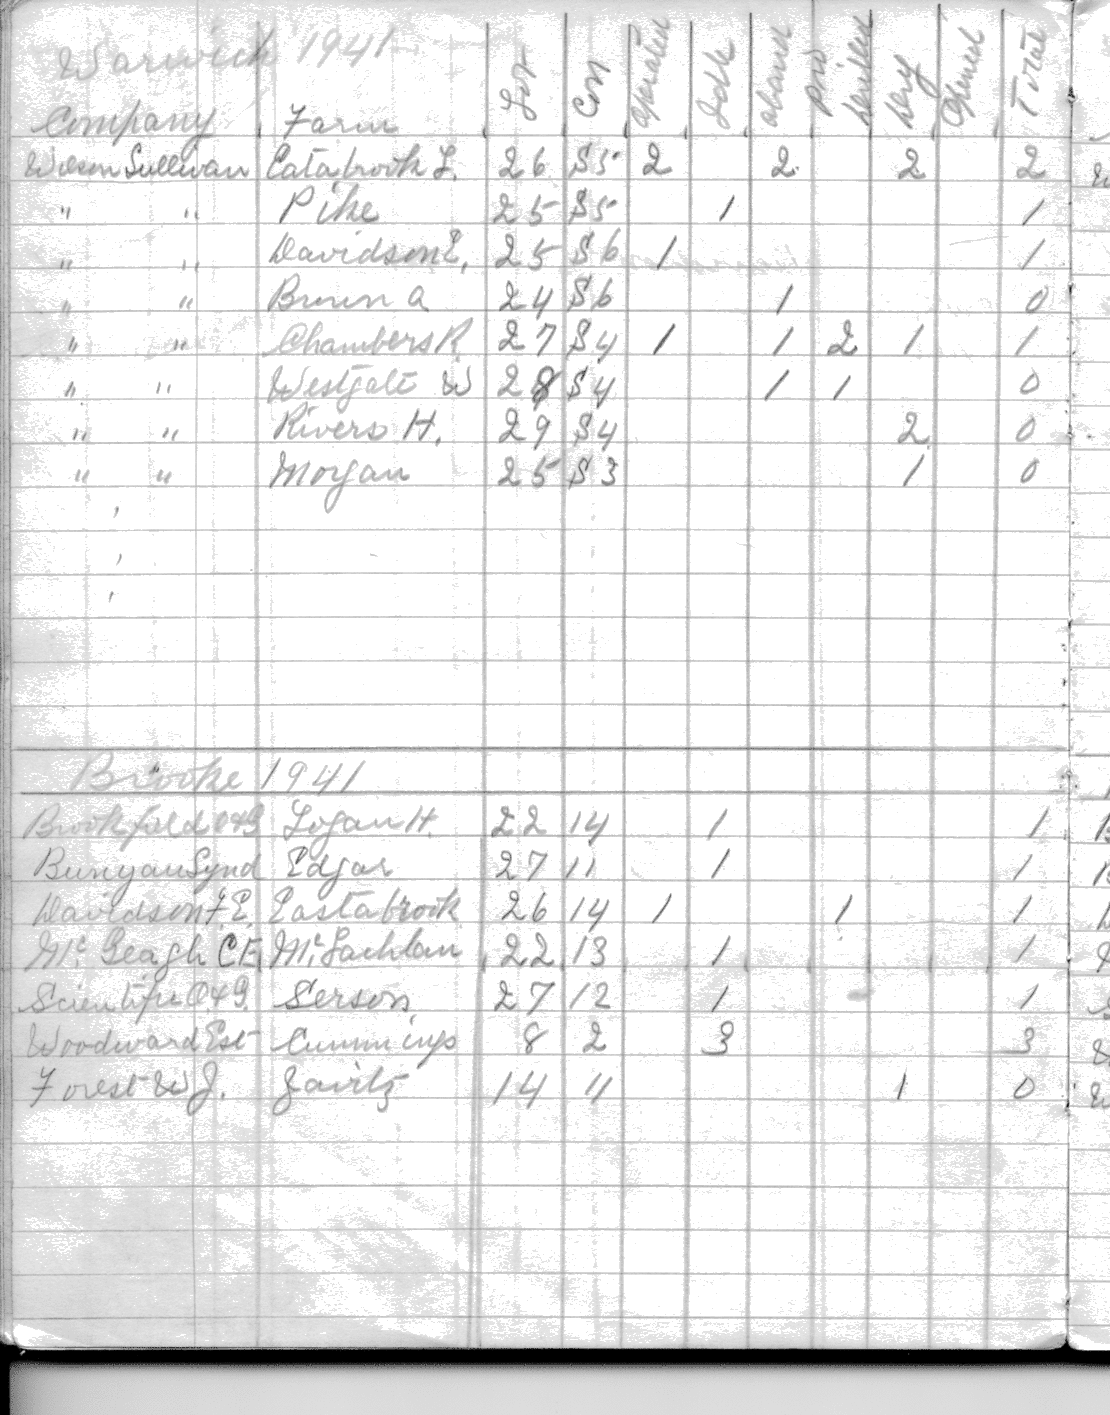 Warwick 1941
Company Farm Lot Con Operated Idle aband pro drilled Dry Opened Total
Wilson Sullivan Eatabrook L. 26 S5 2 2 2 2
" " Pike 25 S5 1 1
" " Davidson E. 25 S6 1 1
" " Brown A 24 S6 1 0
" " Chambers R. 27 S4 1 1 2 1 1
" " Westgate W 28 S4 1 1 0
" " Rivers H. 29 S4 2 0
" " Morgan 25 S3 1 0
Brooke 1941
Brookfield O&G Logan H. 22 14 1 1
Bunyan Synd Edgar 27 11 1 1
Davidson F.E. Eastabrook 26 14 1 1 1
Mc Geagh C.F. Mc Lachlan 22 13 1 1
Scientific O&G. Serson 27 12 1 1
Woodward Est Cummings 8 2 3 3
Forest W J. Zavitz 14 11 1 0